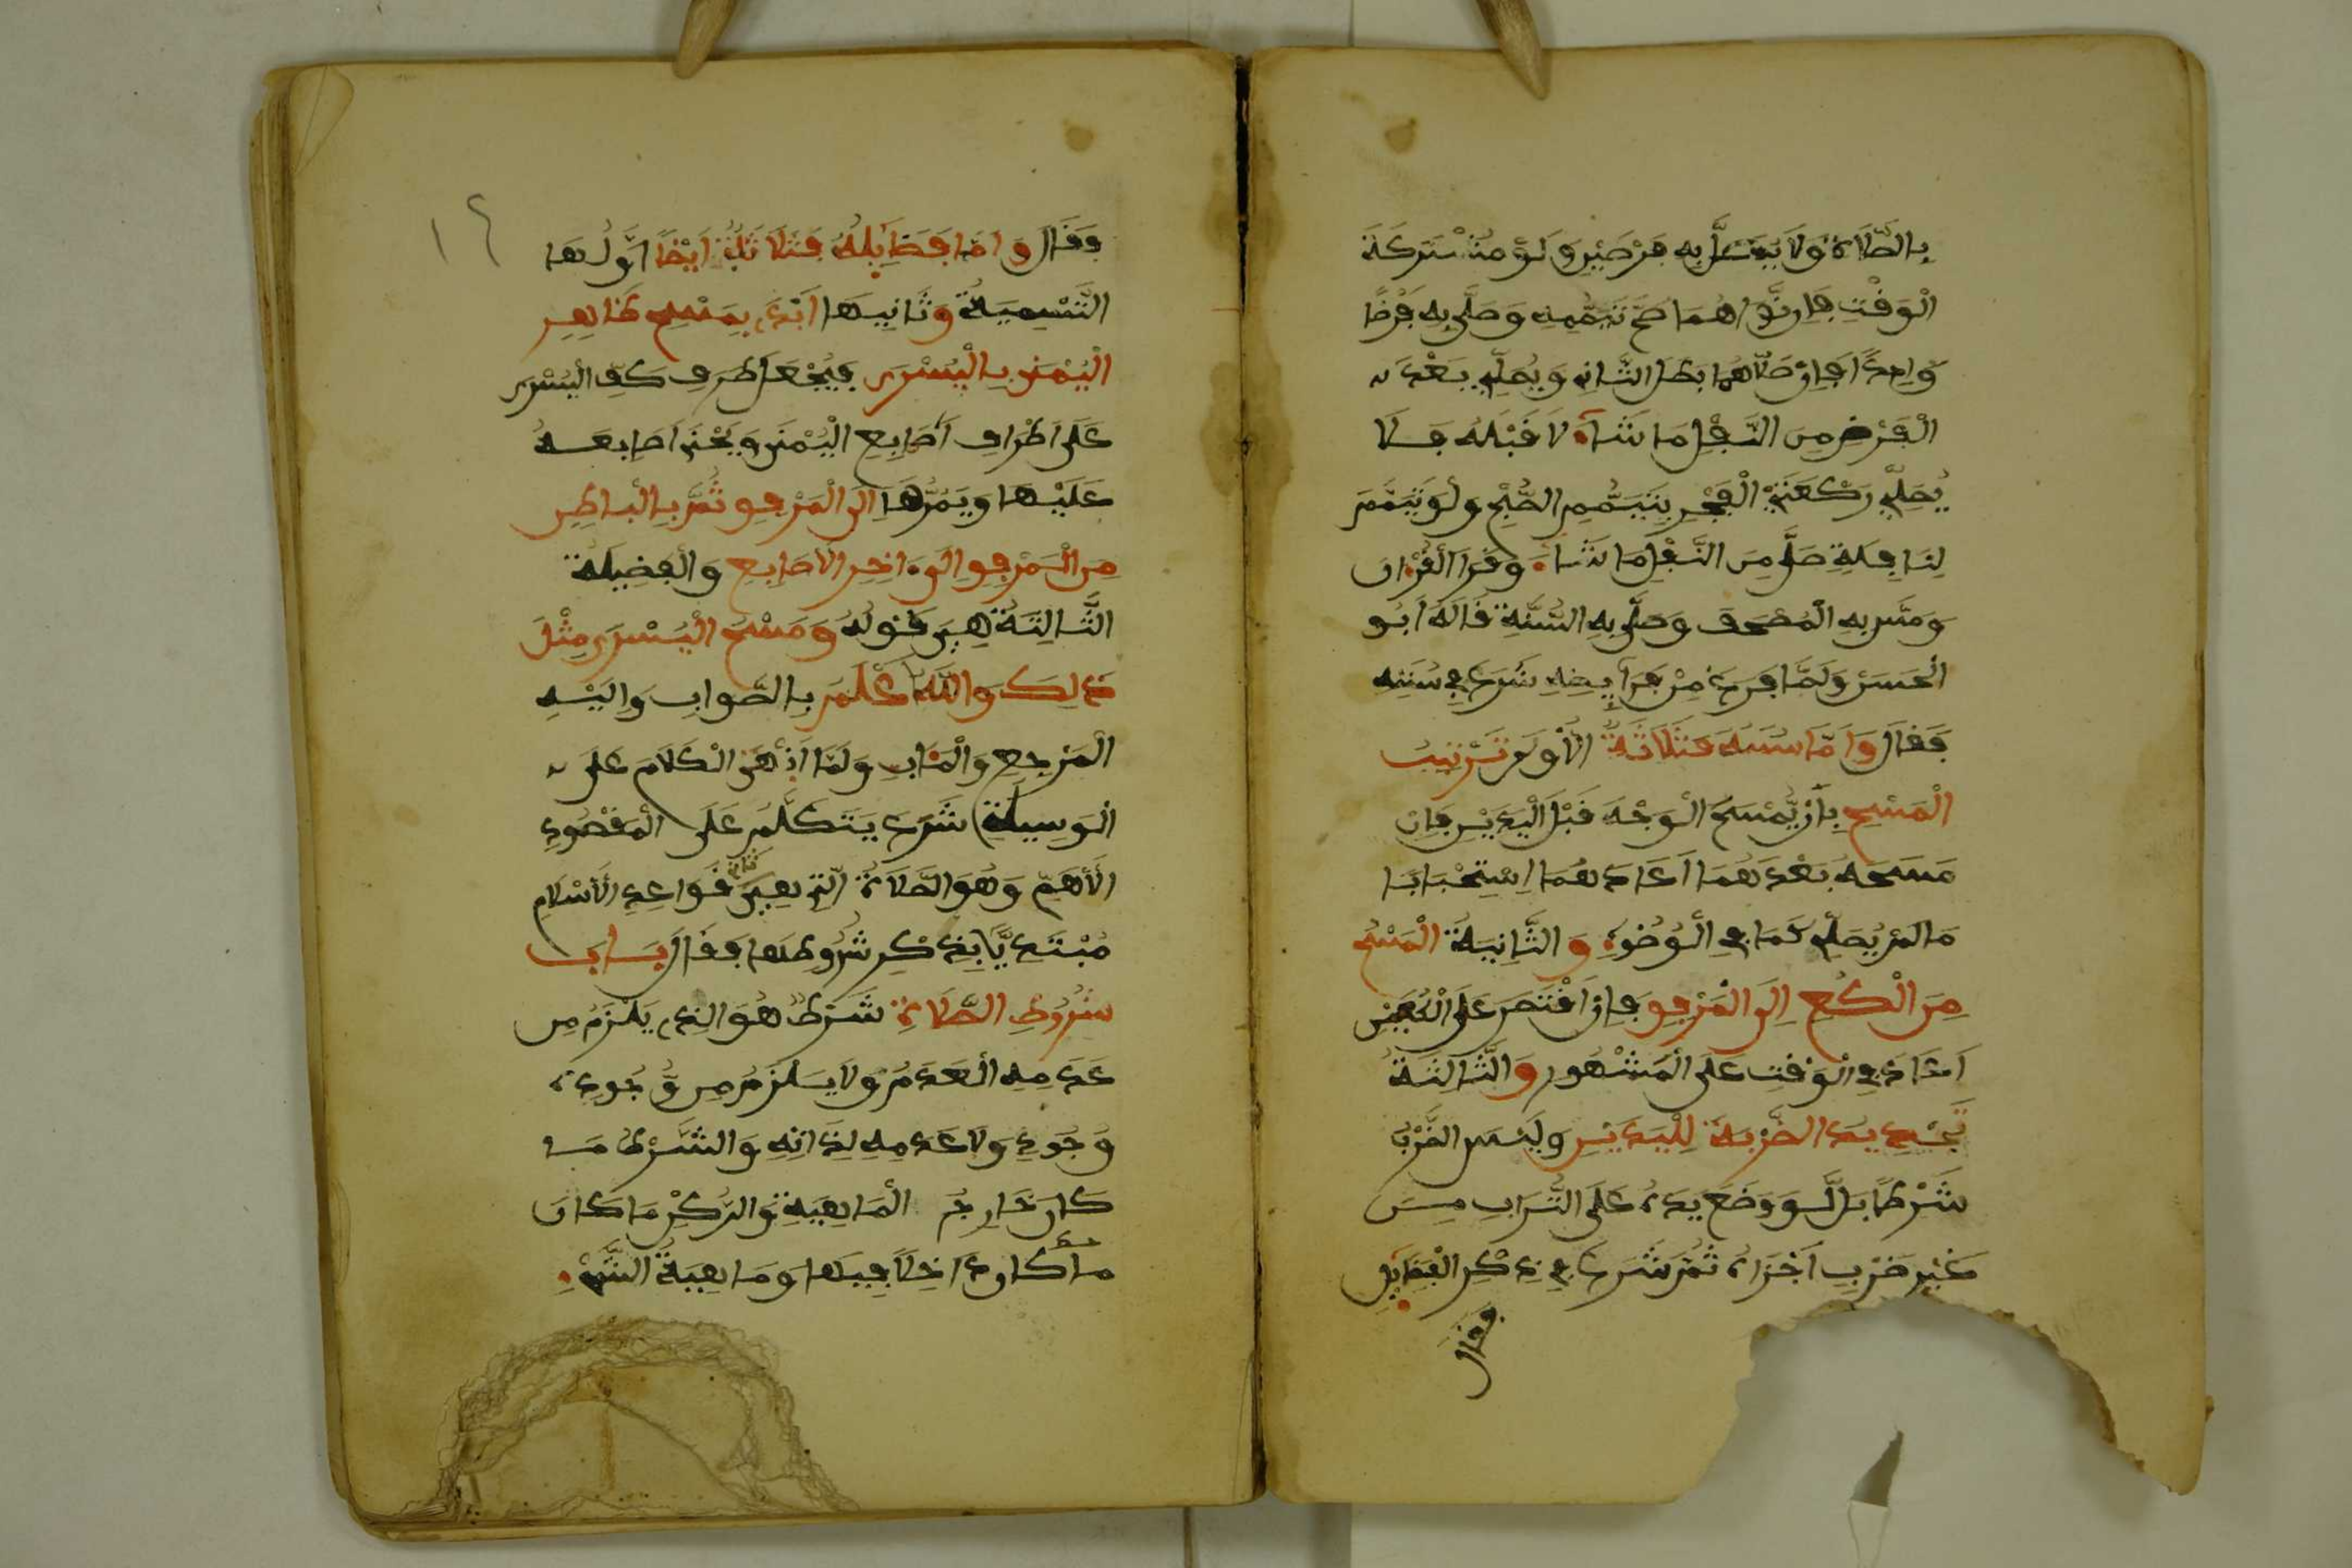 بِالصَّلَاةِ وَلَا يُصَلَّى بِهِ فرضين وَلَوْ مُشْتَرَكَةَ
الْوَقْتِ فَإِن نَّوَاهُمَا صَحَّ تَيَمُّمه وَصَلَّى بِهِ فَرْضًا
وَاحِدًا فَإِن صَلَّاهُمَا بَطَلَ الثَّانِي وَيُصَلِّي بَعْدَ
الْفَرْضِ مِنَ النَّفْلِ مَا شَاءَ لَا قَبْلَهُ فَلَا
يُصَلِّي رَكْعَتَيْ الْفَجْرِ بِتَيَمُّمِ الصُّبْحِ وَلَوْ تَيَمَّمَ
لِنَافِلَةٍ صَلَّى مِنَ النَّفْلِ مَا شَاءَ وَقَرَأَ الْقُرْءَانَ
وَمَسَّ بِهِ الْمُصْحَفَ وَصَلَّى بِهِ السُّنَّةِ قَالَهُ أَبُو
الْحَسَن وَلَمَّا فَرَغَ مِنْ فَرَآئِضِهِ شَرَعَ فِي سُنَنِهِ
فَقَالَ وَأَمَّا سُنَنَهُ فَثَلَاثَةٌ الْأُولَى تَرْتِيبُ
الْمَسْحِ بِأَنْ يُّمْسَحَ الْوَجْهَ قَبْلَ الْيَدَيْنِ فَإِن
مَسَحَهُ بَعْدَهُمَا أَعَادَهُمَا اِسْتِحْبَابًا
مَا لَمْ يُصَلِّ كَمَا فِي الْوُضُوءِ وَالثَّانِيَةُ الْمَسْحُ
مِنَ الْكُوعِ إِلَى الْمَرْفِقِ فَإِنْ اقْتَصَرَ عَلَى الْكُوعَيْنِ
أَعَادَ فِي الْوَقْتِ عَلَى الْمَشْهُورِ وَالثَّالِثَةُ
تَجْدِيد الضَّرْبَةِ لِلْيَدَيْنِ وَلَيْسَ الضَّرْبُ
شَرْطًا بَل لَّوْ وَضَعَ يَدَهُ عَلَى التُّرَابِ مِنَ
غَيْرِ ضَرْبٍ أَجْزَأَهُ ثُمَّ شَرَعَ فِي ذِكْرِ الْفَضَآئِلِ
فقال
١٤
فَقَالَ وَأَمَّا فَضَائِلُهُ فَثَلَاثَةٌ أَيْضًا أَوَّلُهَا
التَّسْمِيَةُ وَثَانِيهَا الْبَدْءُ بِمَسْحِ ظَاهِرِ
الْيُمْنَى بِالْيُسْرَى فَيُجْعَل طَرَف كَفِّ الْيُسْرَى
عَلَى أَطْرَافِ أَصَابِعِ الْيُمْنَى وَيَحْنِي أَصَابِعَهُ
عَلَيْهَا وَيَمُرُّهَا إِلَى الْمَرْفِقِ ثُمَّ بِالْبَاطِنِ
مِنَ الْمَرْفِقِ إِلَى ءَاخِرِ الْأَصَابِعِ وَالْفَضِيلَةُ
الثَّالِثَةُ هِيَ قَوْلُهُ وَمَسْحُ الْيُسْرَى مِثْلَ
ذَلِكَ وَاللَّهُ أَعْلَمُ بِالصَّوَابِ وَإِلَيْهِ
الْمَرْجِعُ وَالْمَئَابُ وَلَمَّا أَنْهَى الْكَلَامَ عَلَى
الْوَسِيلَةِ شَرَعَ يَتَكَلَّمُ عَلَى الْمَقْصُودِ
الْأَهَمِّ وَهُوَ الصَّلَاةُ الَّتِي هِيَ ثاني قَوَاعِدِ الْإِسْلَامِ
مُبْتَدِيًّا بِذِكْرِ شُرُوطِهَا فَقَالَ بَابُ
شُرُوطِ الصَّلَاةِ شَرْطٌ هُوَ الَّذِي يَلْزَمُ مِن
عَدَمِهِ الْعَدَمُ وَلَا يَلْزَمُ مِن وُّجُودِهِ
وُجُودٌ وَلَا عَدَمه لِذَاتِهِ وَالشَّرْطُ مَا
كَانَ خَارِجُ الْمَاهِيَةِ وَالرُّكْنُ مَا كَانَ
ما كان دَاخِلًا فِيهَا وَمَاهِيَةُ الشَّيْءِ